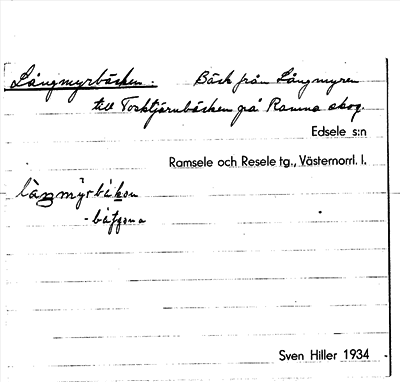 Långmyrbäcken. Bäck från Långmyren
till Torktjärnbäcken på Ramna skog.
Edsele s:n
Ramsele och Resele tg., Västernorrl. l.
Sven Hiller 1934